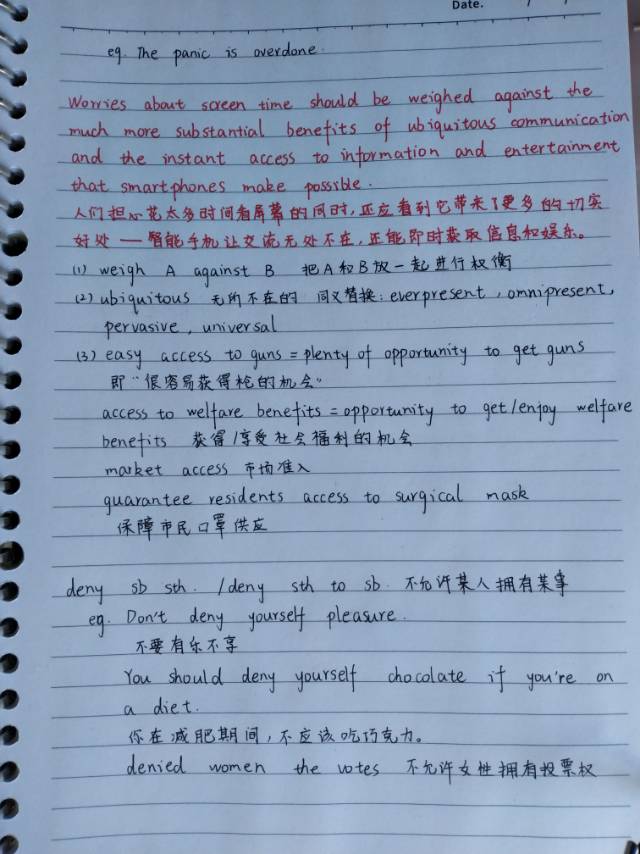 Date.
eg. The panic is overdone.
Worries about screen time should be weighed against the
much more substantial benefits of ubiquitous communication
and the instant access to information and entertainment
that smartphones make possible.
人们担心花太多时间看屏幕的同时,还应看到它带来了更多的切实
好处 — 智能手机让交流无处不在,还能即时获取信息和娱乐。
(1) weigh A against B 把A和B放一起进行权衡
(2) ubiquitous 无所不在的 同义替换: everpresent, omnipresent,
pervasive, universal
(3) easy access to guns = plenty of opportunity to get guns
即"很容易获得枪的机会"
access to welfare benefits = opportunity to get/enjoy welfare
benefits 获得/享受社会福利的机会
market access 市场准入
guarantee residents access to surgical mask
保障市民口罩供应
deny sb sth. /deny sth to sb. 不允许某人拥有某事
eg. Don't deny yourself pleasure.
不要有乐不享
You should deny yourself chocolate if you're on
a diet.
你在减肥期间,不应该吃巧克力。
denied women the votes 不允许女性拥有投票权